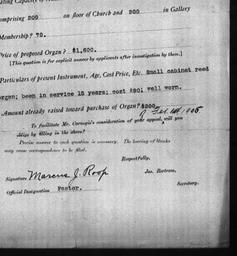 comprising 500 on floor of Church and 200 in Gallery
Membership? 70.
Price of proposed Organ? $1,600.
[This question is for explicit answer by applicants after investigation by them]
Particulars of present Instrument, Age, Cost Price, Etc. Small cabinet reed
organ; been in service 15 years; cost $80; well worn.
Amount already raised toward purchase of Organ? $200.
To facilitate Mr. Carnegie's consideration of your appeal, will you
oblige by filling in the above?
Precise answer to each question is necessary. The leaving of blanks
may cause correspondence to be filed.
Respectfully,
Jas. Bertram,
Secretary.
Signature Marcus J. Roop
Official Designation Pastor.